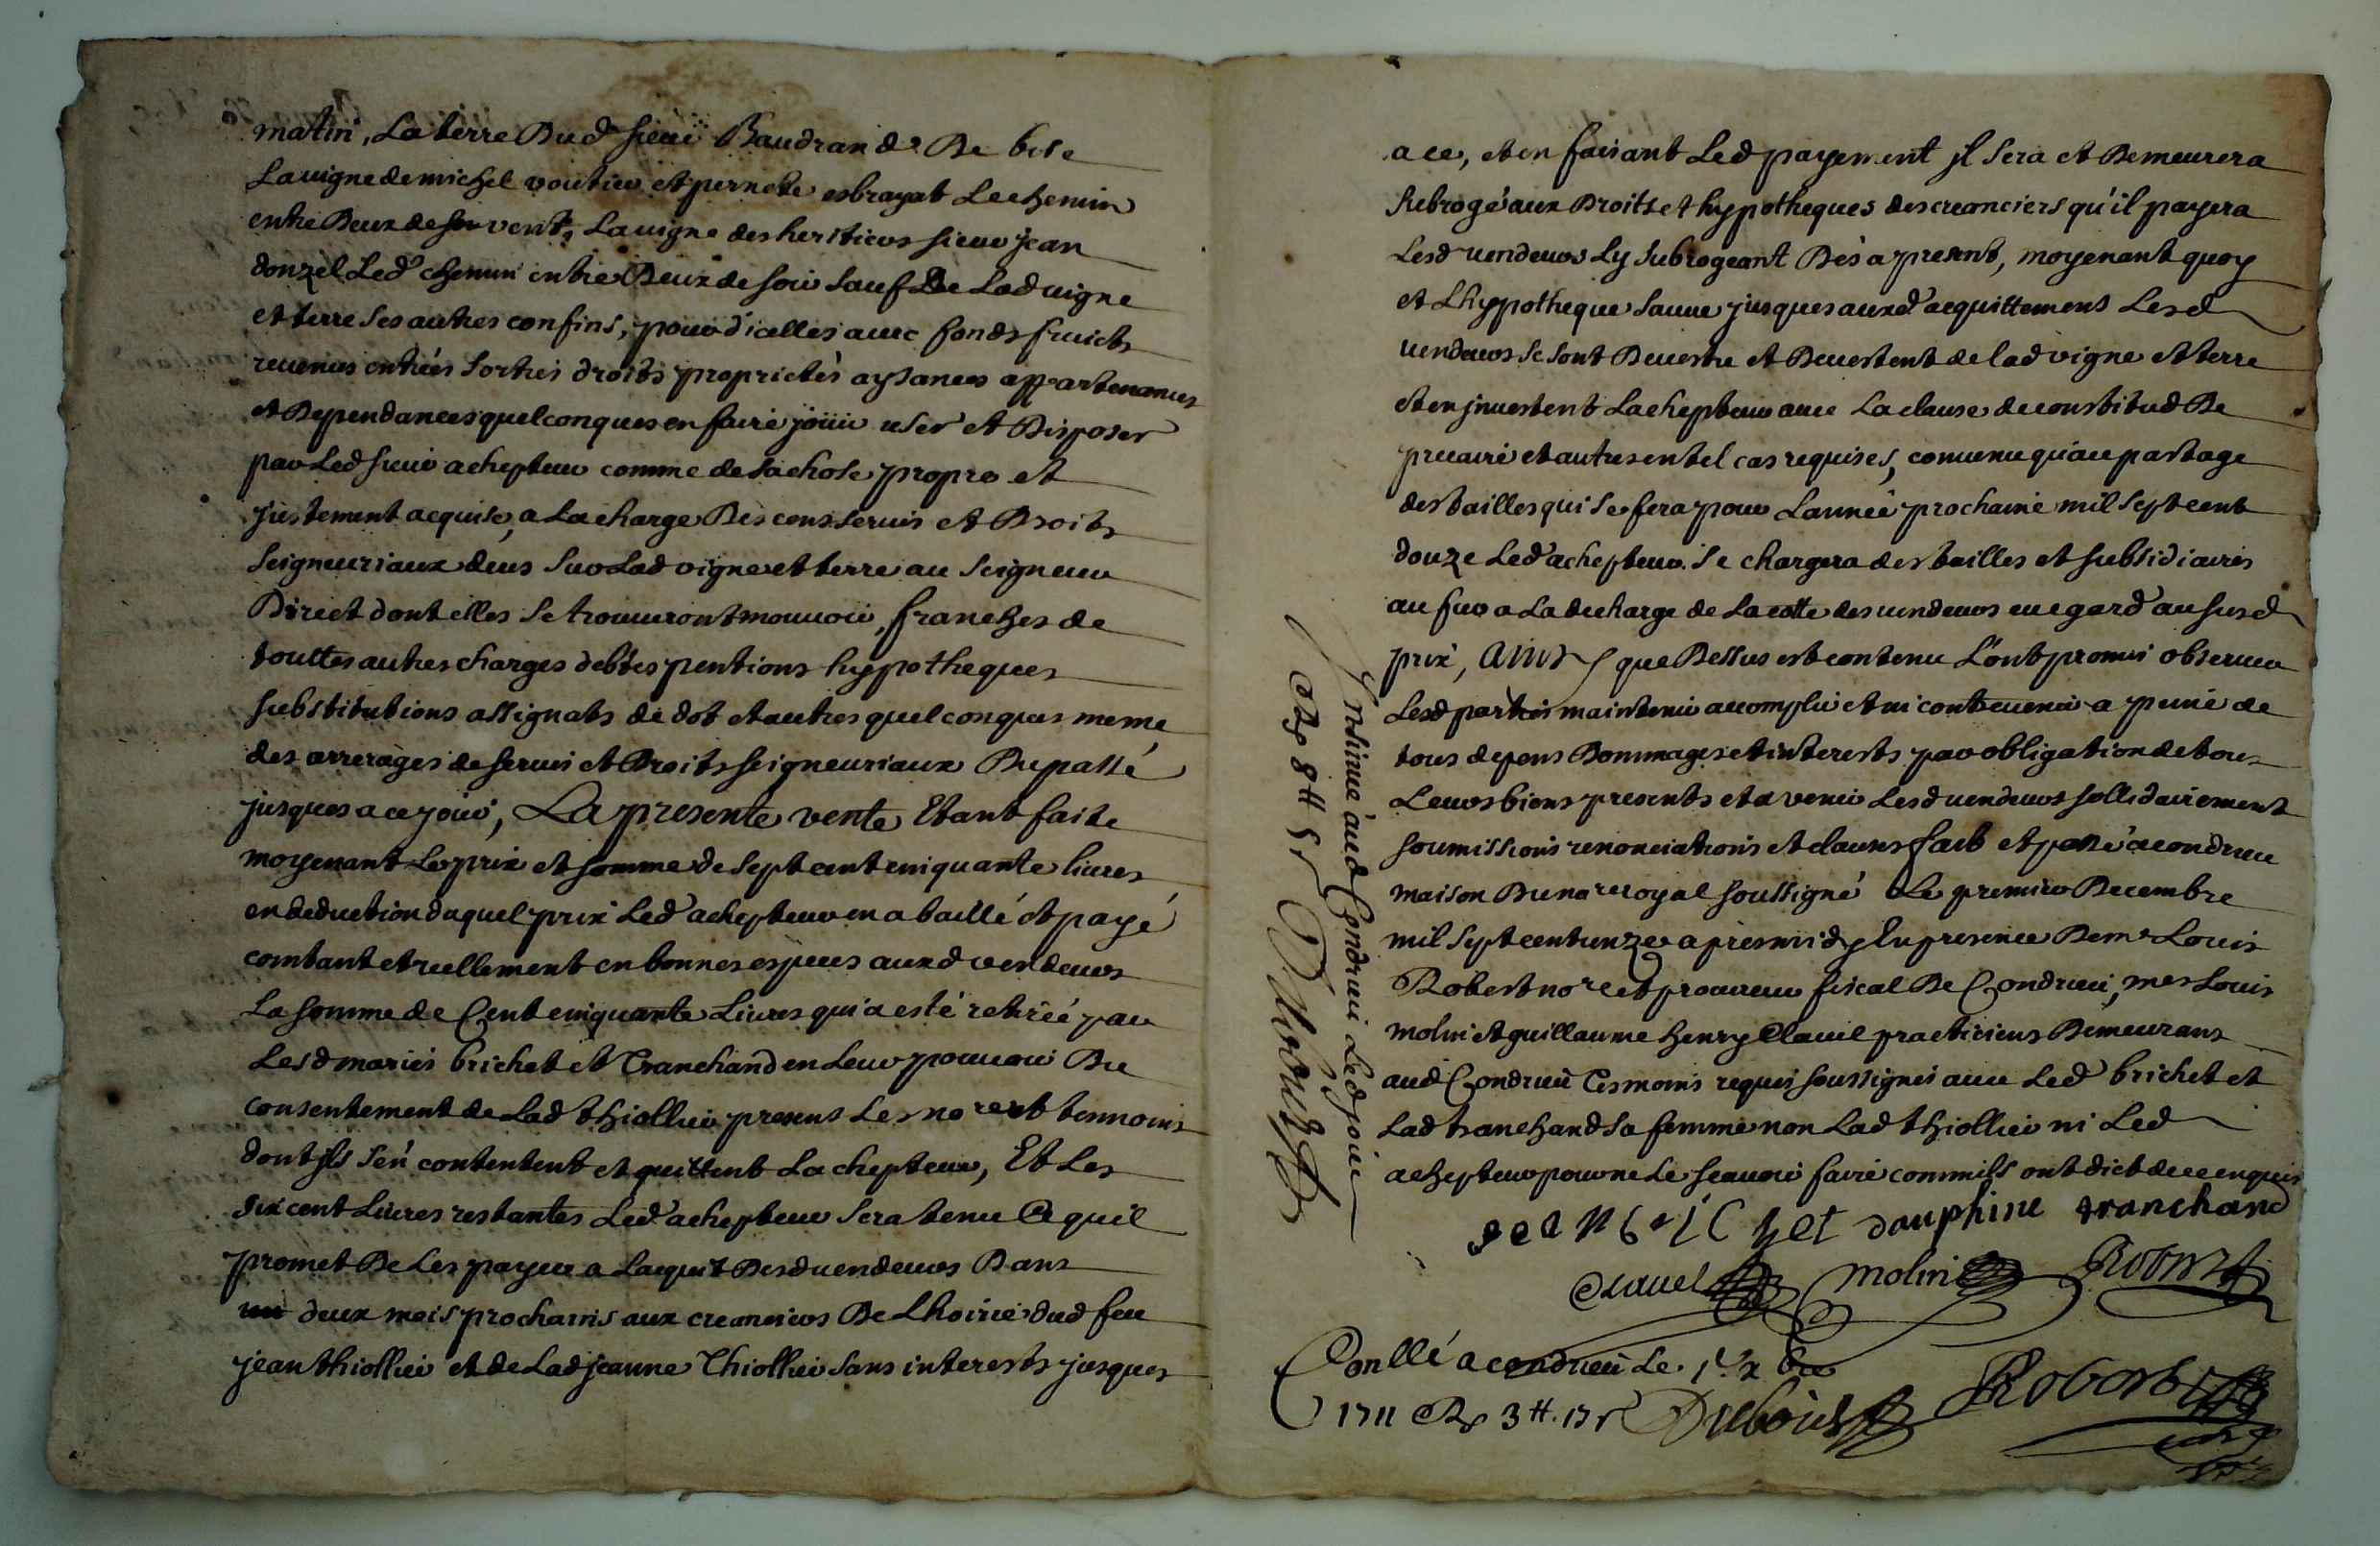 matin, La terre Dud.t sieur Baudrand De bise
La vigne de michel voutier et pernete esbrayat Le chemin
entre Deux de vent, La vigne des heritiers sieur jean
donzel Led.t chemin entre Deux de soir sauf De Lad vigne
et terre ses autres confins, pour d'icelles avec fonds fruicts
revenus entrées sorties droits proprietés aysances appartenances
et Dependances quelconques en faire jouir user et Disposer
par Led sieur achepteur comme de sa chose propre et
justement acquise, a La charge Des cens servis et Droits
seigneuriaux deus sur Lad vigne et terre au seigneur
Direct dont elles se trouveront mouvoir, franches de
touttes autres charges debtes pentions hypotheques
substitutions assignats de dot et autres quelconques meme
des arrerages de servis et Droits seigneuriaux Du passé
jusques a ce jour, La presente vente Etant faite
moyenant Le prix et somme de sept cent cinquante livres
en deduction duquel prix Led achepteur en a baillé et payé
comtant et reellement en bonnes especes auxd vendeurs
La somme de Cent cinquante Livres qui a esté retirée par
Lesd mariés brichet et Tranchand en Leur pouvoir Du
consentement de Lad thiollier presens Les no.re et temoins
dont jls s'en contentent et quittent Lachepteur, Et Les
six cent Livres restantes Led achepteur sera tenu Et quil
promet De Les payer a Lacquit Desd vendeurs Dans
deux mois prochains aux creanciers De Lhoirie dud feu
jean thiollier et de Lad jeanne Thiollier sans interests jusques
a ce, et en faisant Led payement jl sera et Demeurera
subrogé aux Droits et hypotheques des creanciers qu'il payera
Lesd vendeurs Ly subrogeant Dès a present, moyenant quoy
et Lhypotheque sauve jusques auxd acquittemens Lesd
vendeurs se sont Devestu et Devestent de lad vigne et terre
et en jnvestent Lachepteur avec La clause de constitud De
precaire et autres en tel cas requises, convenu qu'au partage
des tailles qui se fera pour L'année prochaine mil sept cent
douze Led achepteur se chargera des tailles et subsidiaires
au fur a La decharge de La cotte des vendeurs eu egard au susd
prix, ainsy que Dessus est contenu L'ont promis observer
Lesd parties maintenir accomplir et ni contrevenir a peine de
tous depens Dommages et interests par obligation de tous
Leurs biens presents et a venir Lesd vendeurs sollidairement
soumissions renonciations et clauses fait et passé a condrieu
maison Du no.re royal soussigné Le premier Decembre
mil sept cent unze apres midy En presence De m.e Louis
Robert no.re et procureur fiscal De Condrieu, mes Louis
molin et guillaume henry Clavel practiciens Demeurans
aud Condrieu Temoins requis soussignés avec Led brichet et
Lad tranchand sa femme non Lad thiollier ni Led
achepteur pour ne Le scavoir faire comm'ils ont dict de ce enquis
jean brichet dauphine tranchand
Clavel molin Robert
Conllé a condrieu Le 1.er x bre
1711 R 3 tt. 17 s Dubois Robert
Insinué aud Condrieu Led jour
R 8 tt 5 s Dubois